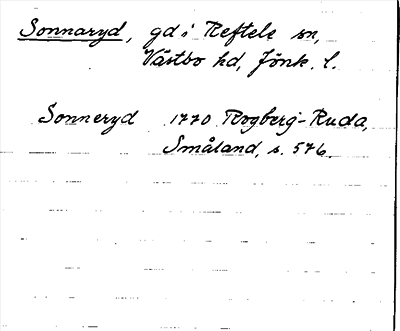 Sonnaryd, gd i Reftele sn,
Västbo hd, Jönk. l.
Sonneryd 1770 Rogberg-Ruda,
Småland, s. 576.